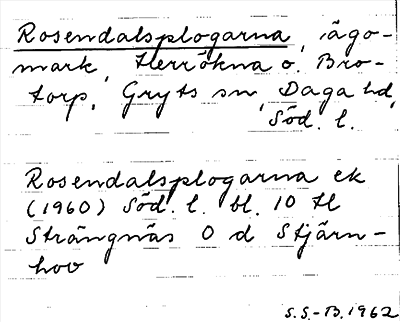 Rosendalsplogarna, ägo-
mark, Herrökna o. Bro-
torp, Gryts sn, Daga hd,
Söd. l.
Rosendalsplogarna ek
(1960) Söd. l. bl. 10 tl
Strängnäs O d Stjärn-
hov
S.S-B. 1962